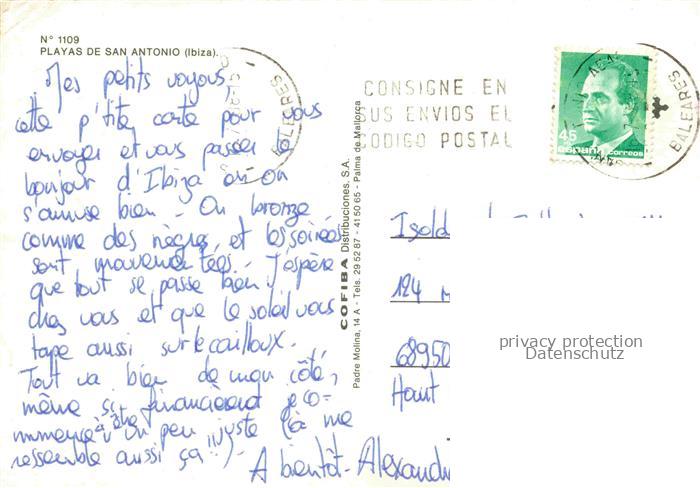 N° 1109
PLAYAS DE SAN ANTONIO (Ibiza).
Mes petits voyous,
cette p'tite carte pour vous
envoyer et vous passer le
bonjour d'Ibiza où on
s'amuse bien. On bronze
comme des nègres, et les soirées
sont mouvementées. J'espère
que tout se passe bien
chez vous et que le soleil vous
tape aussi sur le cailloux.
Tout va bien de mon côté,
même si financièrement je co-
mmence à être un peu juste (à me
ressemble aussi ça!!)-
A bientôt. Alexand
COFIBA Distribuciones, S.A.
Padre Molina, 14 A - Tels. 29 52 87 - 41 50 65 - Palma de Mallorca
CONSIGNE EN
SUS ENVIOS EL
CODIGO POSTAL
BALEARES
45
españa correos
BALEARES
Isold
124
68950
Haut
privacy protection
Datenschutz